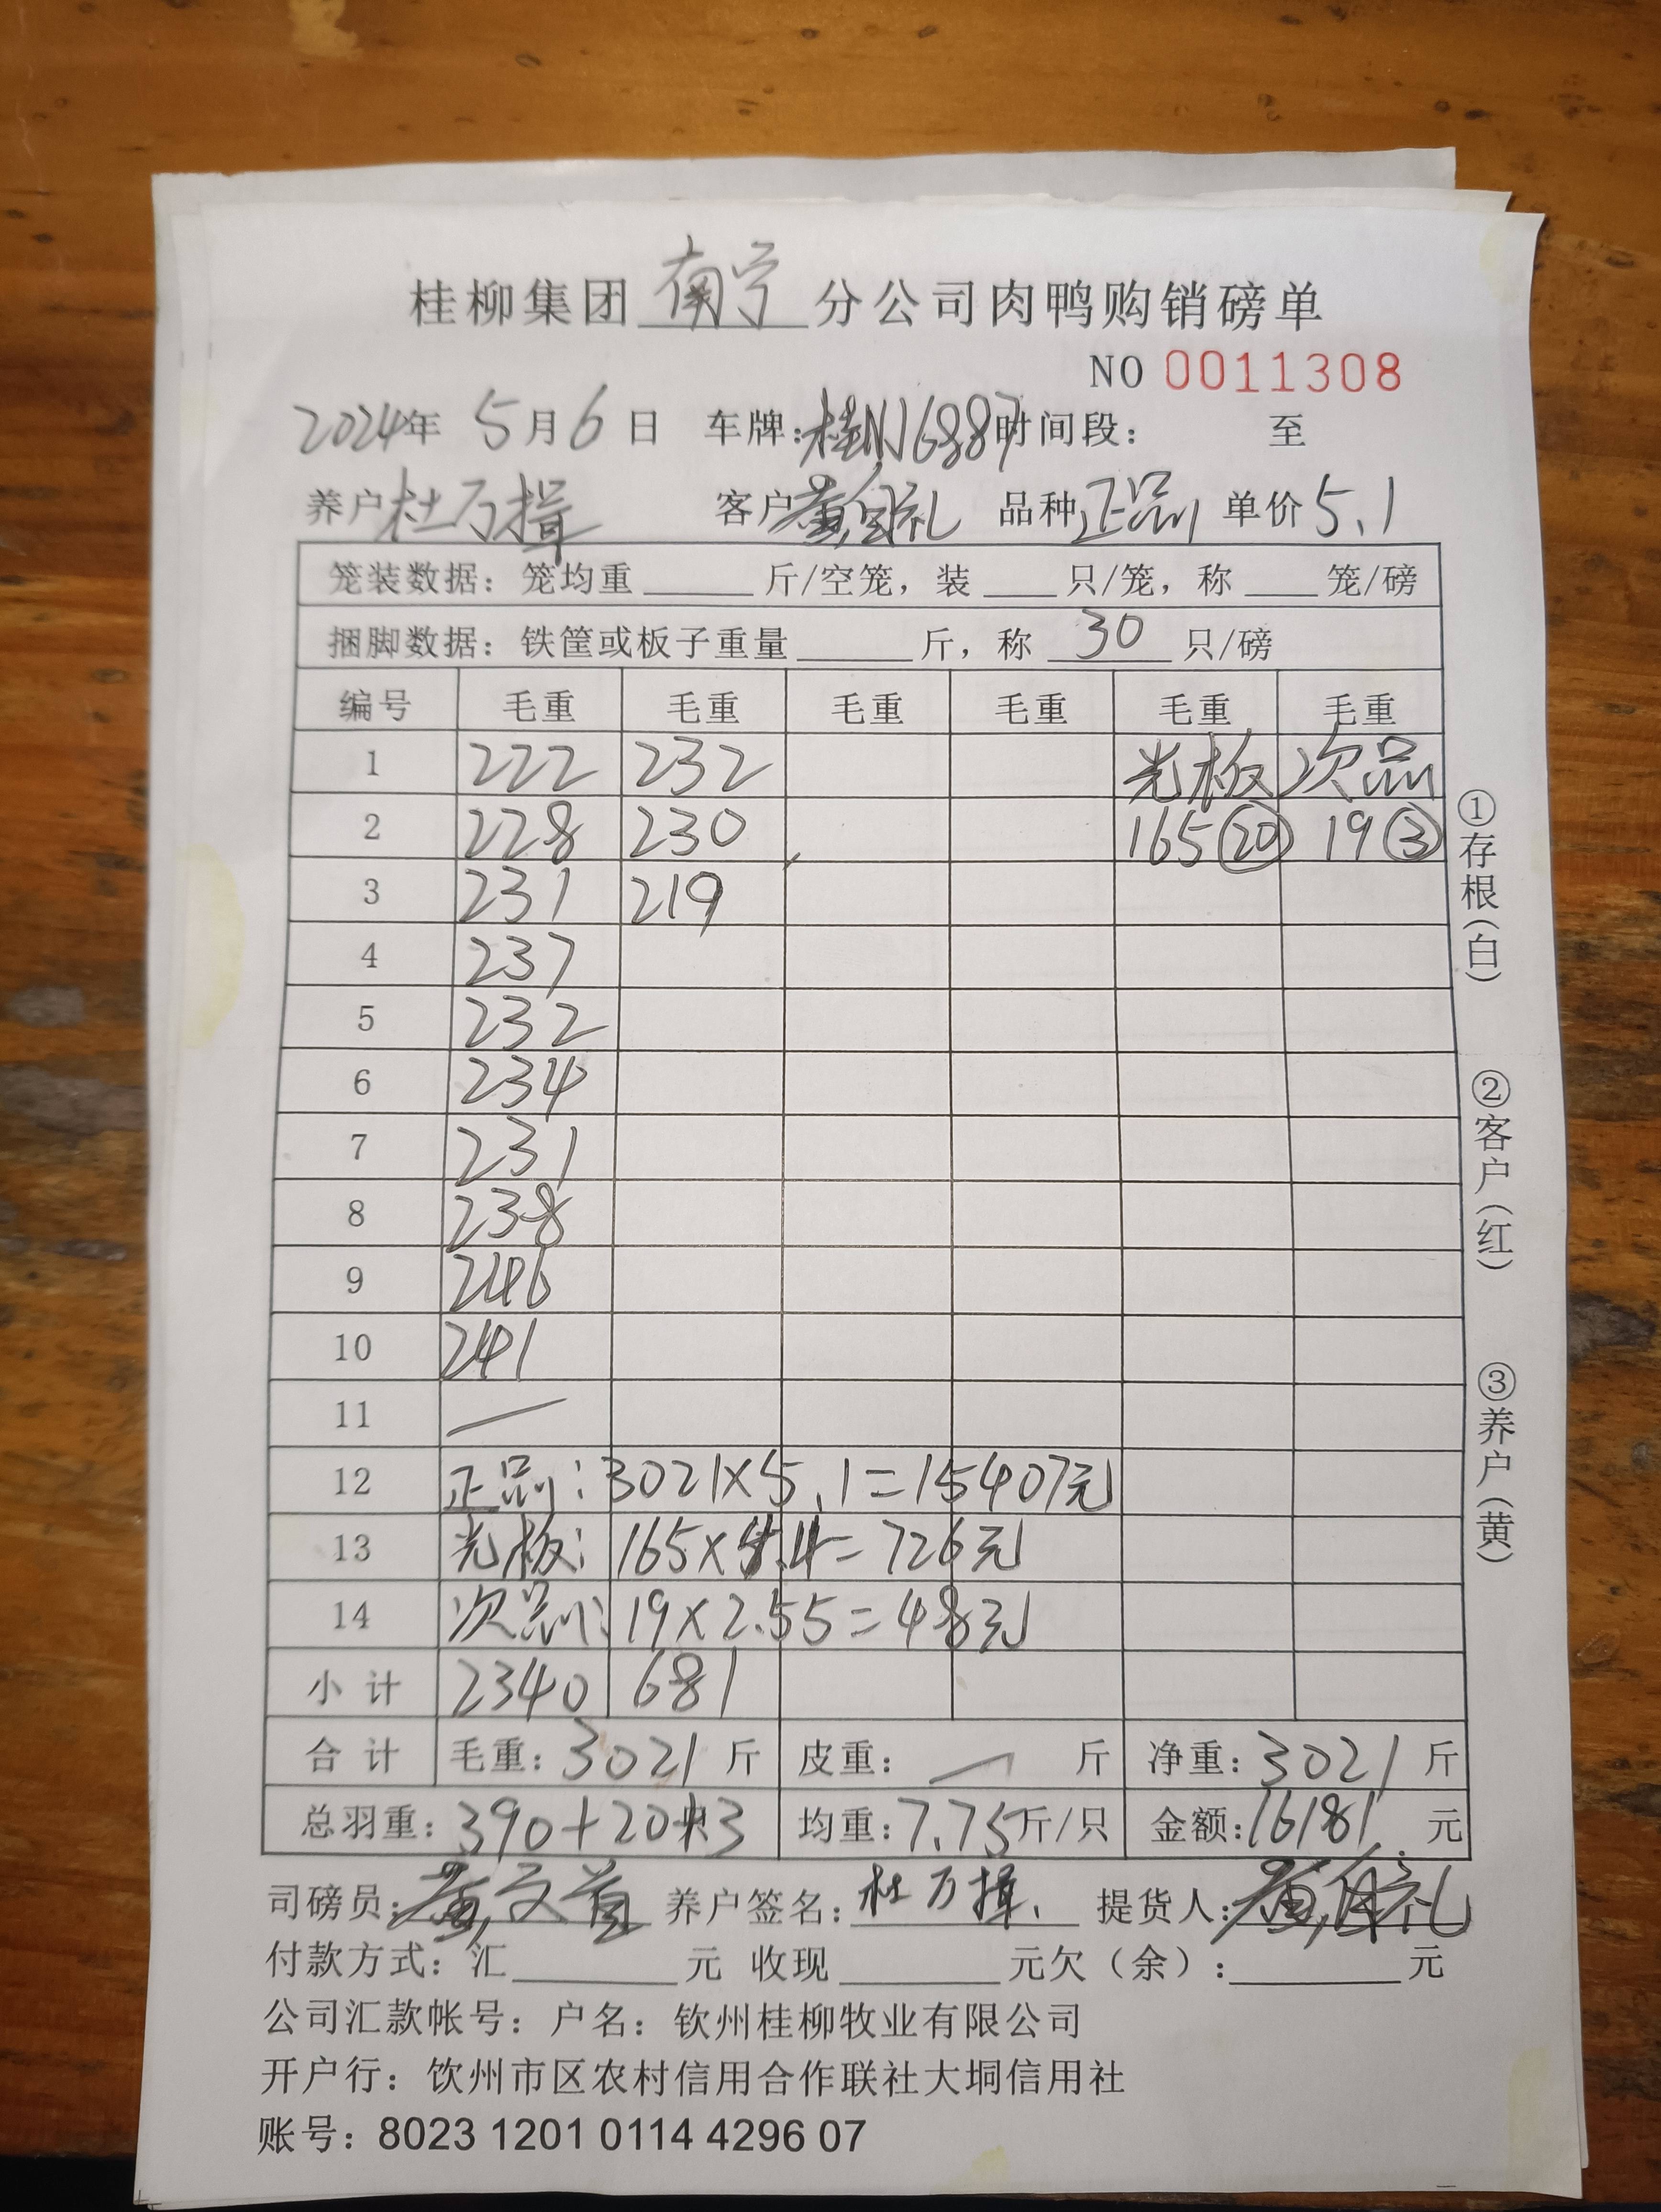 桂柳集团 南宁 分公司肉鸭购销磅单
NO 0011308
2024年 5月6日 车牌:桂N16887 时间段: 至
养户 杜万揖 客户 黄自礼 品种 正品 单价 5.1
笼装数据: 笼均重 斤/空笼, 装 只/笼, 称 笼/磅
捆脚数据: 铁筐或板子重量 斤, 称 30 只/磅
编号 毛重 毛重 毛重 毛重 毛重 毛重
1 222 232 光板 次品
2 228 230 165⑳ 19③
3 231 219
4 237
5 232
6 234
7 231
8 238
9 246
10 241
11 —
12 正品: 3021×5.1=15407元
13 光板: 165×4.4=726元
14 次品: 19×2.55=48元
小计 2340 681
合计 毛重: 3021 斤 皮重: — 斤 净重: 3021 斤
总羽重: 390+20+3 均重: 7.75斤/只 金额: 16181 元
司磅员: 黄文 养户签名: 杜万揖 提货人: 黄自礼
付款方式: 汇 元 收现 元欠(余): 元
公司汇款帐号: 户名: 钦州桂柳牧业有限公司
开户行: 钦州市区农村信用合作联社大垌信用社
账号: 8023 1201 0114 4296 07
①存根(白)
②客户(红)
③养户(黄)